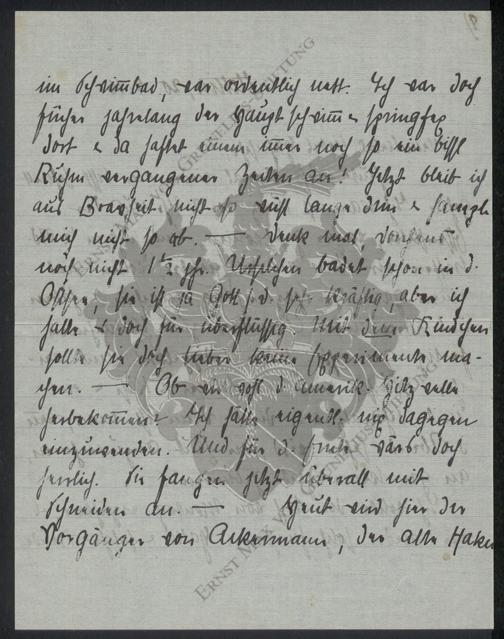 im Schwimmbad, war ordentlich nett. Ich war doch
früher jahrelang der Hauptschwimm & springfex
dort & da haftet einem immer noch so ein bissl
Ruhm vergangener Zeiten an! Jetzt bleib ich
aus Bravheit nicht so lange drin &
mich nicht so ab. — Denk mal
noch nicht 1 1/2 Jhr. badet schon in d.
Ostsee, sie ist ja Gott s. d. sehr kräftig aber ich
halte es doch für überflüssig. Mit Kindchen
sollte sie doch lieber keine Experimente ma-
chen. — Ob wir wohl d. amerik. Hitzwelle
herbekommen? Ich hätte eigentl. nix dagegen
einzuwenden. Und für d. Ernte wärs doch
herrlich. Sie fangen jetzt überall mit
Schneiden an. — Heut wird hier der
Vorgänger von Ackermann, der alte Haken
ERNST MAX VON GRUNELIUS-STIFTUNG
ERNST MAX VON GRUNELIUS-STIFTUNG